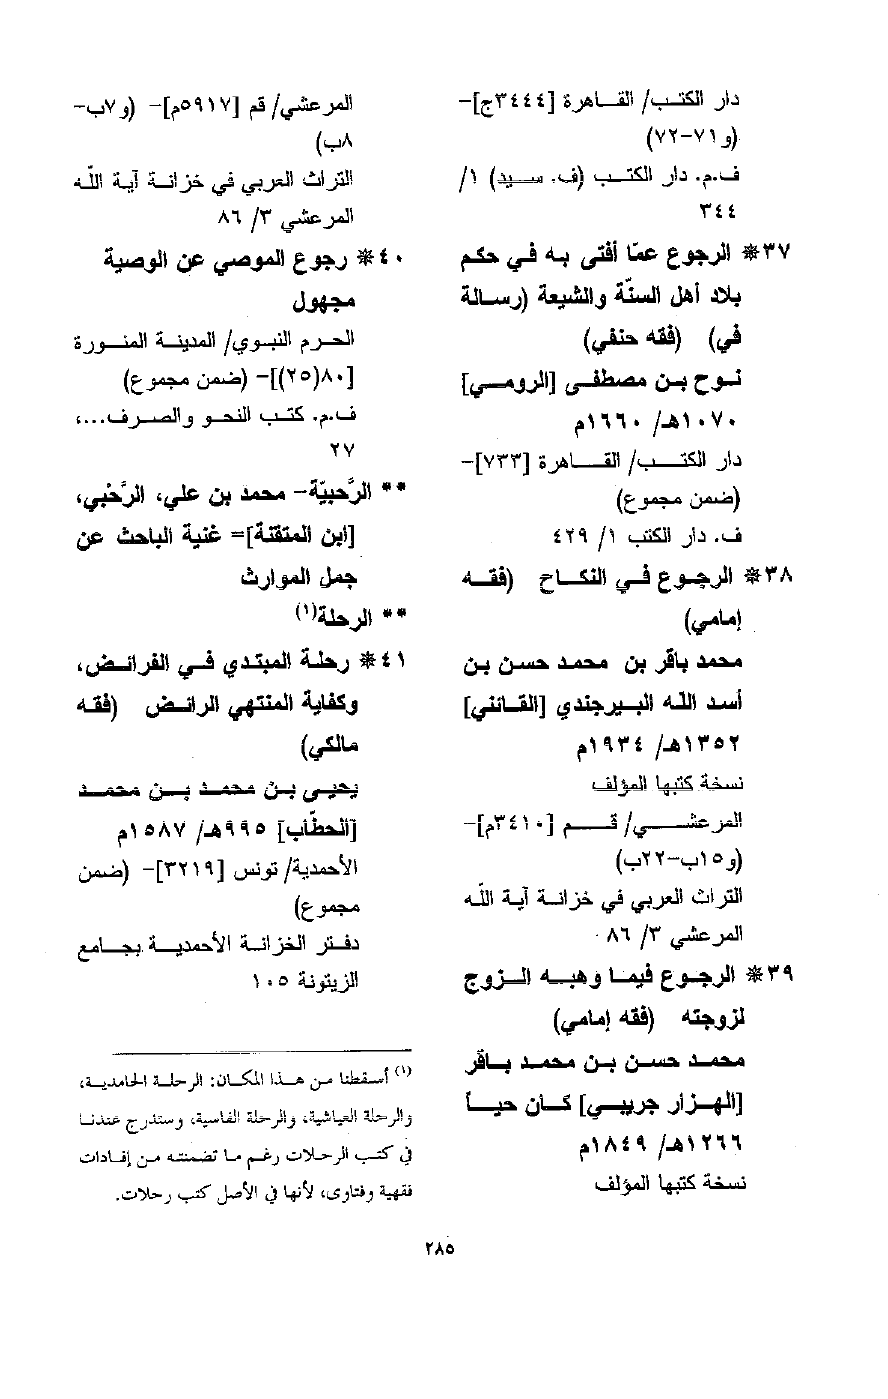 دار الكتب/ القاهرة [٣٤٤٤ج]-
(و٧١-٧٢)
ف.م. دار الكتب (ف. سيد) ١/
٣٤٤
٣٧* الرجوع عمّا أفتى به في حكم
بلاد أهل السنّة والشيعة (رسالة
في) (فقه حنفي)
نوح بن مصطفى [الرومي]
١٠٧٠هـ/ ١٦٦٠م
دار الكتب/ القاهرة [٧٣٣]-
(ضمن مجموع)
ف. دار الكتب ١/ ٤٢٩
٣٨* الرجوع في النكاح (فقه
إمامي)
محمد باقر بن محمد حسن بن
أسد الله البيرجندي [القائني]
١٣٥٢هـ/ ١٩٣٤م
نسخة كتبها المؤلف
المرعشي/ قم [٣٤١٠م]-
(و١٥ب-٢٢ب)
التراث العربي في خزانة آية الله
المرعشي ٣/ ٨٦
٣٩* الرجوع فيما وهبه الزوج
لزوجته (فقه إمامي)
محمد حسن بن محمد باقر
[الهزار جريبي] كان حياً
١٢٦٦هـ/ ١٨٤٩م
نسخة كتبها المؤلف
المرعشي/ قم [٥٩١٧م]- (و٧ب-
٨ب)
التراث العربي في خزانة آية الله
المرعشي ٣/ ٨٦
٤٠* رجوع الموصي عن الوصية
مجهول
الحرم النبوي/ المدينة المنورة
[٨٠(٢٥)]- (ضمن مجموع)
ف.م. كتب النحو والصرف...،
٢٧
** الرَّحبيّة- محمد بن علي، الرَّحْبي،
[ابن المتقنة]= غنية الباحث عن
جمل الموارث
** الرحلة(١)
٤١* رحلة المبتدي في الفرائض،
وكفاية المنتهي الرائض (فقه
مالكي)
يحيى بن محمد بن محمد
[الحطّاب] ٩٩٥هـ/ ١٥٨٧م
الأحمدية/ تونس [٣٢١٩]- (ضمن
مجموع)
دفتر الخزانة الأحمدية بجامع
الزيتونة ١٠٥
(١) أسقطنا من هذا المكان: الرحلة الحامدية،
والرحلة العياشية، والرحلة الفاسية، وستدرج عندنا
في كتب الرحلات رغم ما تضمنته من إفادات
فقهية وفتاوى، لأنها في الأصل كتب رحلات.
٢٨٥